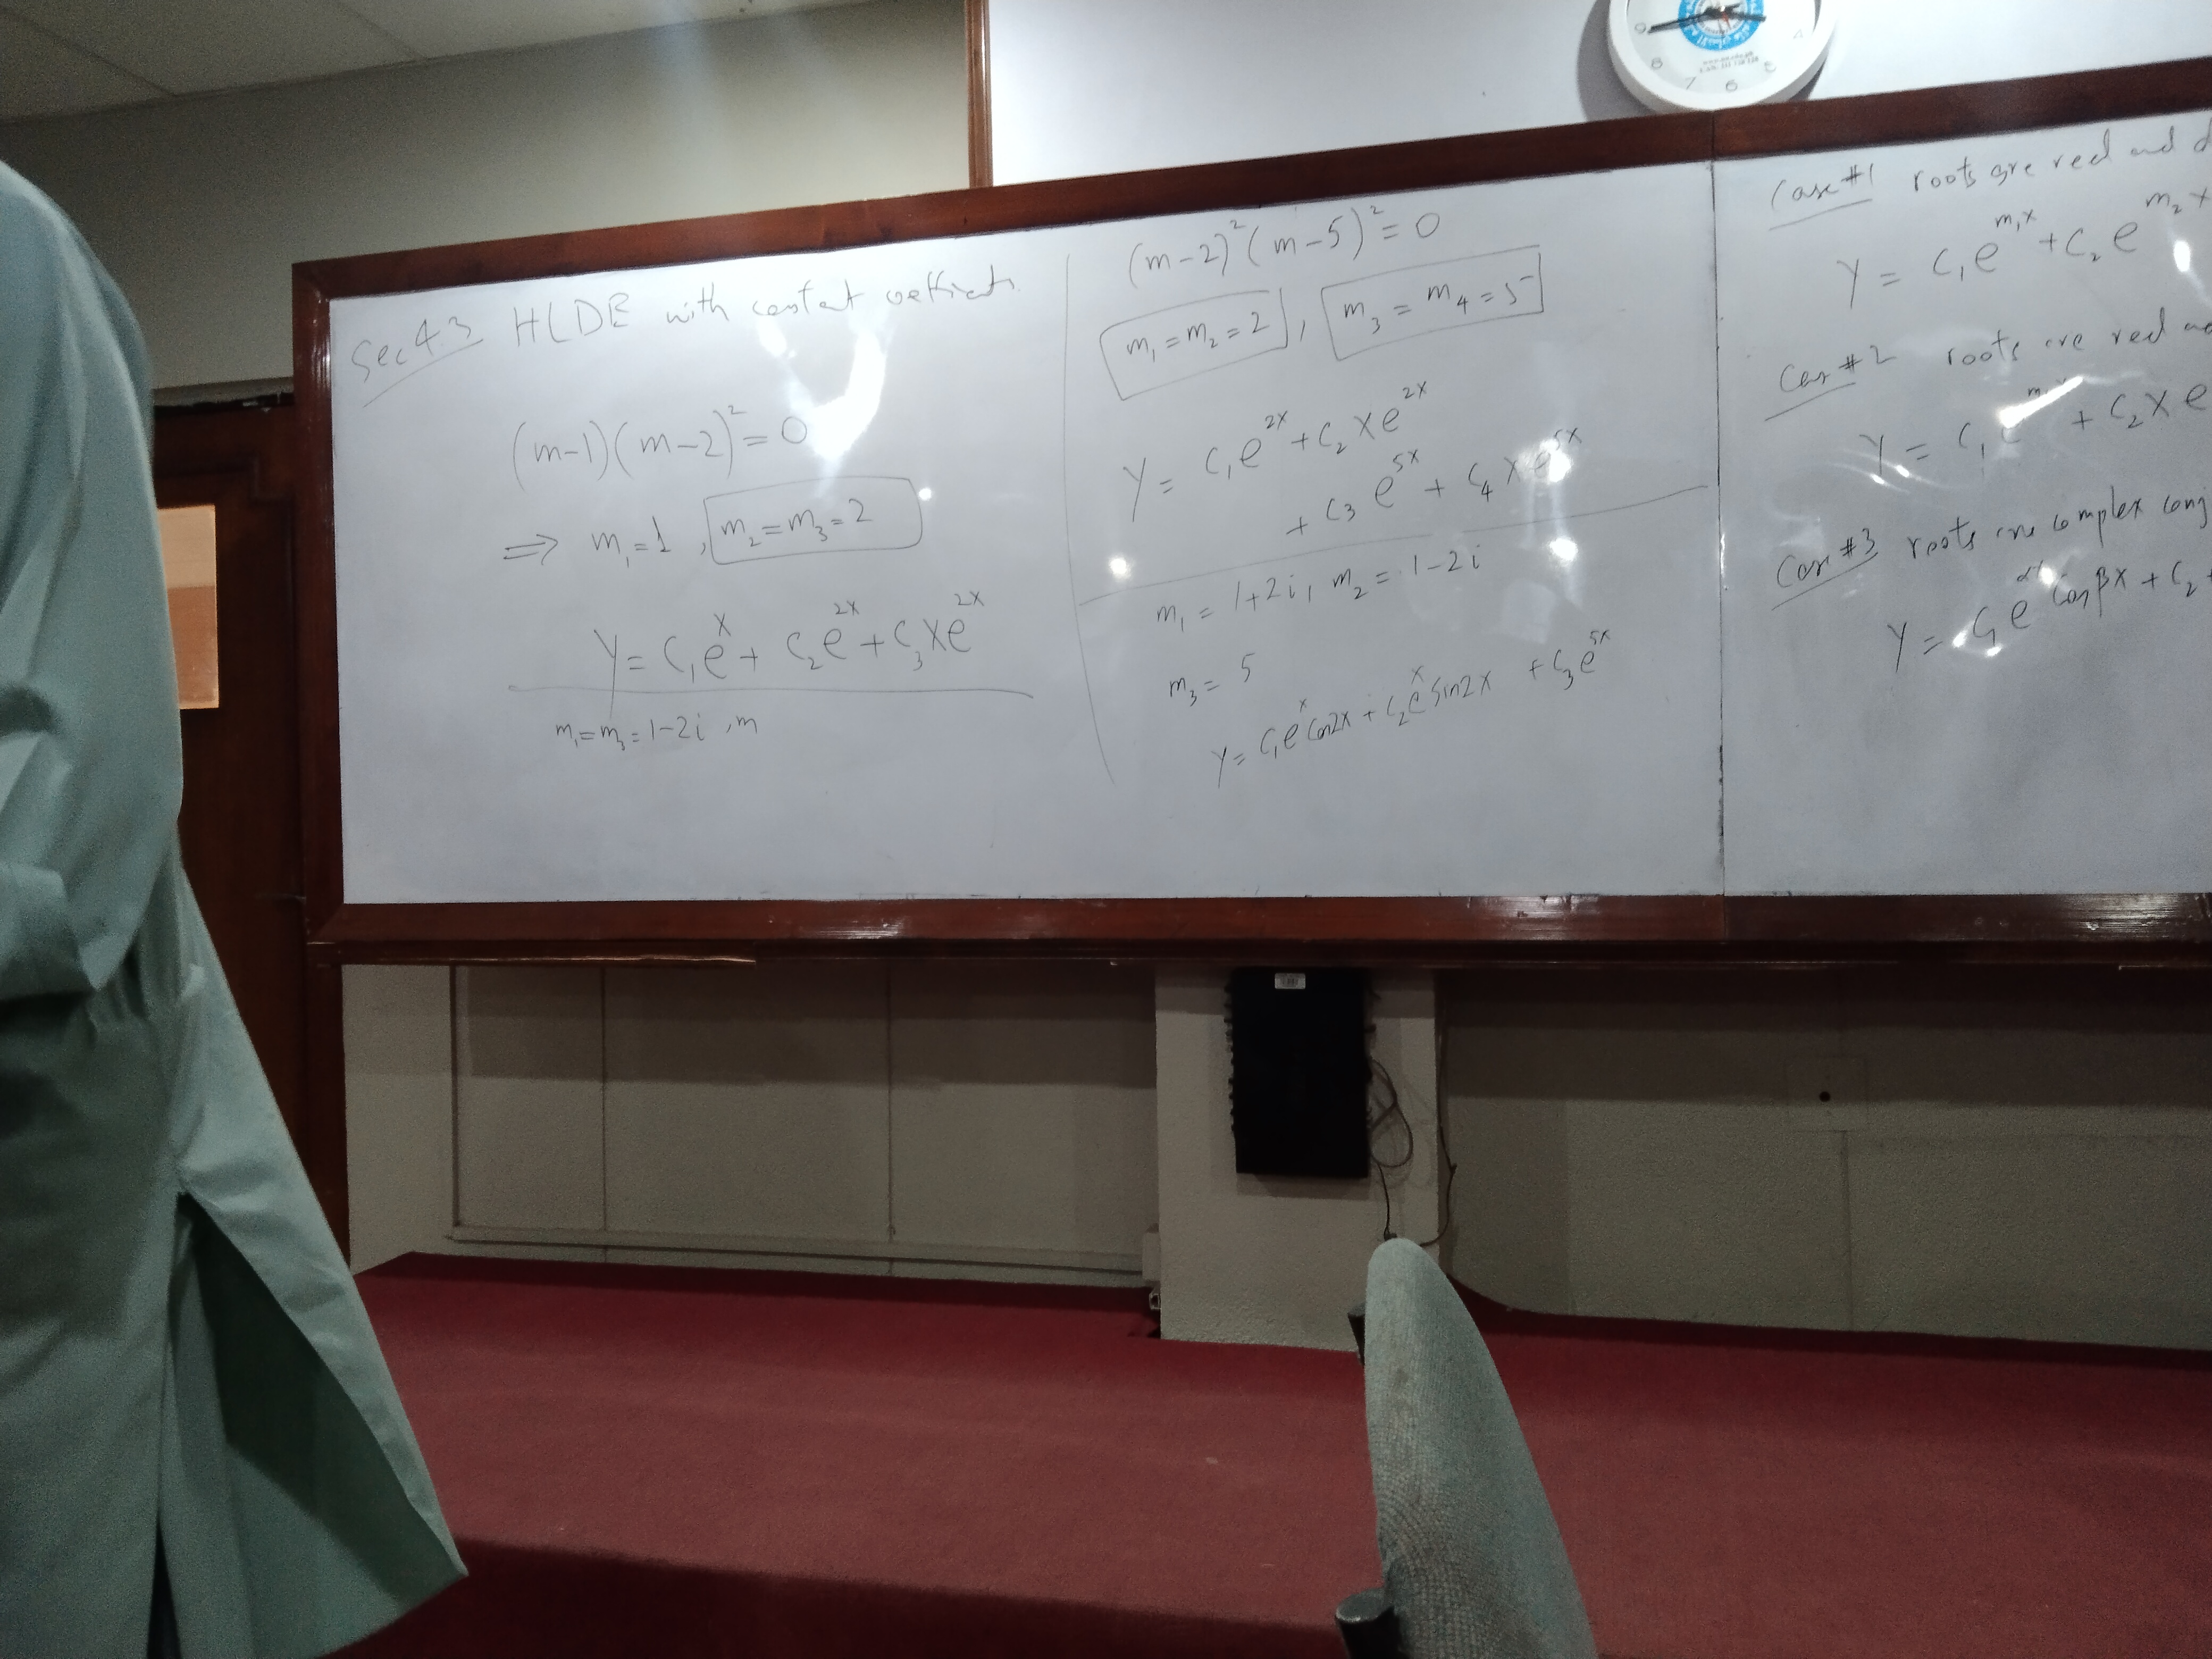 Sec 4.3 HLDE with constant coefficients
(m-1)(m-2)²=0
⇒ m₁=1, m₂=m₃=2
y = c₁eˣ + c₂e²ˣ + c₃xe²ˣ
m₁=m₃=1-2i, m
(m-2)²(m-5)²=0
m₁=m₂=2, m₃=m₄=5
y = c₁e²ˣ + c₂xe²ˣ
+ c₃e⁵ˣ + c₄xe⁵ˣ
m₁ = 1+2i, m₂ = 1-2i
m₃ = 5
y = c₁eˣcos2x + c₂eˣsin2x + c₃e⁵ˣ
Case #1 roots are real and d
y = c₁e^{m₁x} + c₂e^{m₂x}
Case #2 roots are real
y = c₁e + c₂xe
Case #3 roots are complex conj
y = c₁e cosβx + c₂
9
8
7
6
5
4